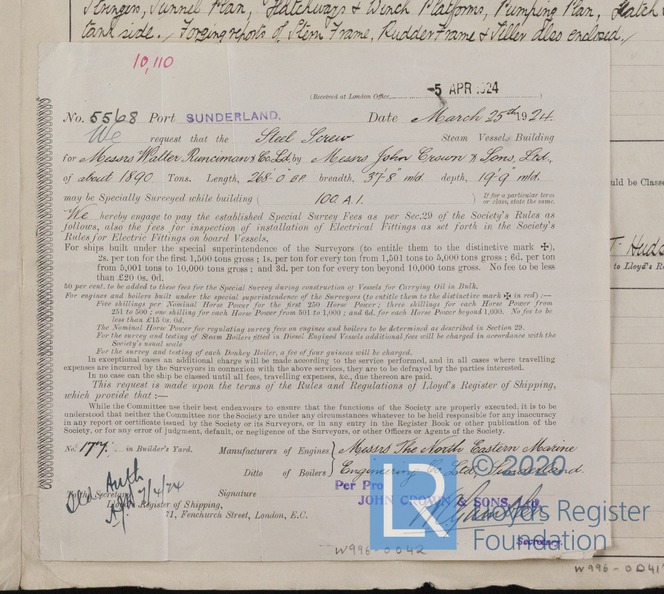 Stringers, Tunnel Plan, Hatchways & Winch Platforms, Pumping Plan, Hatch
tank side. / Forging reports of Stern Frame, Rudder Frame & Tiller also enclosed. /
10,110
(Received at London Office,
-5 APR 1924
No. 5568 Port SUNDERLAND. Date March 25th 1924.
We request that the Steel Screw Steam Vessels Building
for Messrs Walter Runciman & Co. Ltd. by Messrs John Crown & Sons, Ltd.,
of about 1890 Tons. Length, 268'0" BP. breadth. 37'8" mld depth, 19'9" mld.
may be Specially Surveyed while building ( 100 A.1. ) If for a particular term or class, state the same.
We hereby engage to pay the established Special Survey Fees as per Sec.29 of the Society's Rules as
follows, also the fees for inspection of installation of Electrical Fittings as set forth in the Society's
Rules for Electric Fittings on board Vessels,
For ships built under the special superintendence of the Surveyors (to entitle them to the distinctive mark ✠),
2s. per ton for the first 1,500 tons gross ; 1s. per ton for every ton from 1,501 tons to 5,000 tons gross ; 6d. per ton
from 5,001 tons to 10,000 tons gross ; and 3d. per ton for every ton beyond 10,000 tons gross. No fee to be less
than £20 0s. 0d.
50 per cent. to be added to these fees for the Special Survey during construction of Vessels for Carrying Oil in Bulk.
For engines and boilers built under the special superintendence of the Surveyors (to entitle them to the distinctive mark ✠ in red) :—
Five shillings per Nominal Horse Power for the first 250 Horse Power ; three shillings for each Horse Power from
251 to 500 ; one shilling for each Horse Power from 501 to 1,000 ; and 6d. for each Horse Power beyond 1,000. No fee to be
less than £15 0s. 0d.
The Nominal Horse Power for regulating survey fees on engines and boilers to be determined as described in Section 29.
For the survey and testing of Steam Boilers fitted in Diesel Engined Vessels additional fees will be charged in accordance with the
Society's usual scale
For the survey and testing of each Donkey Boiler, a fee of four guineas will be charged.
In exceptional cases an additional charge will be made according to the service performed, and in all cases where travelling
expenses are incurred by the Surveyors in connexion with the above services, they are to be defrayed by the parties interested.
In no case can the ship be classed until all fees, travelling expenses, &c., due thereon are paid.
This request is made upon the terms of the Rules and Regulations of Lloyd's Register of Shipping,
which provide that :—
While the Committee use their best endeavours to ensure that the functions of the Society are properly executed, it is to be
understood that neither the Committee nor the Society are under any circumstances whatever to be held responsible for any inaccuracy
in any report or certificate issued by the Society or its Surveyors, or in any entry in the Register Book or other publication of the
Society, or for any error of judgment, default, or negligence of the Surveyors, or other Officers or Agents of the Society.
No. 177. in Builder's Yard. Manufacturers of Engines Messrs The North Eastern Marine
Ditto of Boilers Engineering Co. Ltd., Sunderland.
Signature Per Pro
JOHN CROWN & SONS,
Register of Shipping,
71, Fenchurch Street, London, E.C.
7/4/24
Secretary.
© 2020
Lloyd's Register
Foundation
LR
W996-0042
W996-0041
uld be Classe
to Lloyd's Re